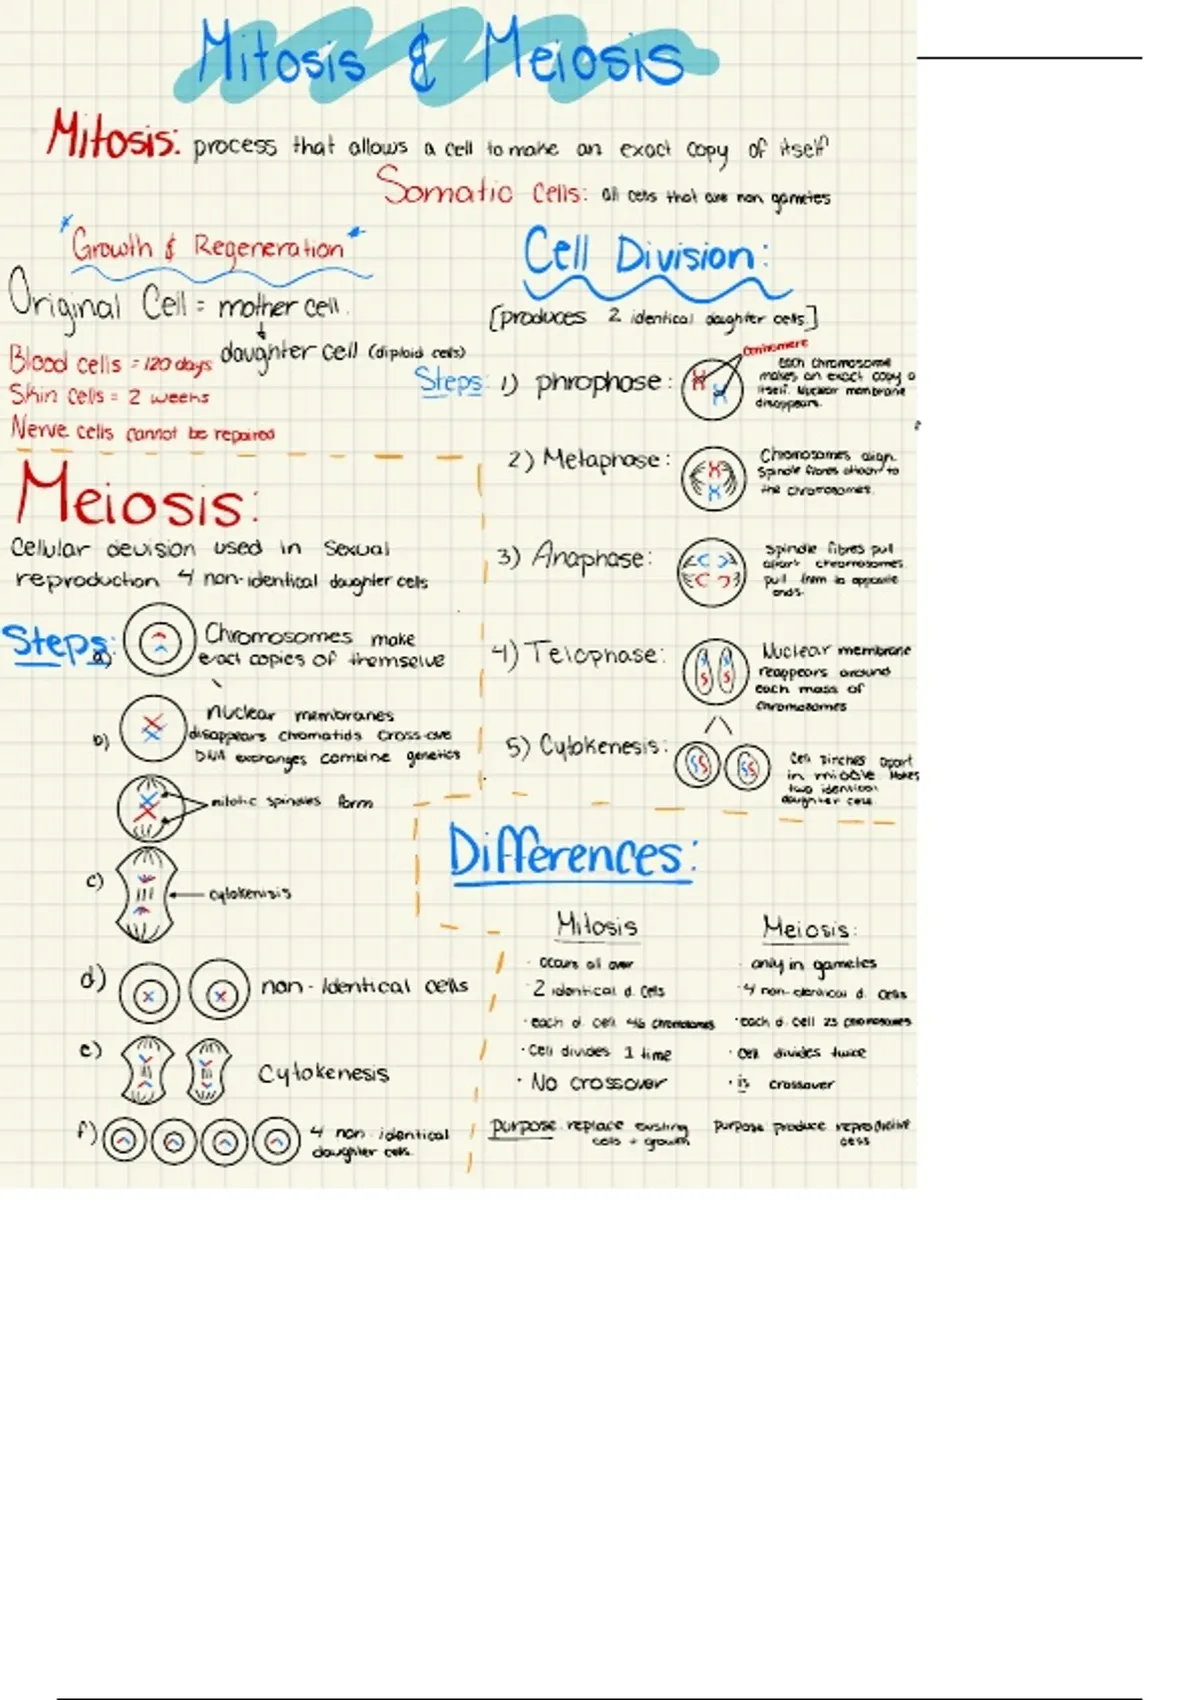 Mitosis & Meiosis
Mitosis: process that allows a cell to make an exact copy of itself
Somatic cells: all cells that are non gametes
*Growth & Regeneration*
Original Cell = mother cell.
daughter cell (diploid cells)
Blood cells = 120 days
Skin cells = 2 weeks
Nerve cells cannot be repaired
Cell Division:
[produces 2 identical daughter cells.]
Steps: 1) phrophase:
Centromere
Each chromosome
makes an exact copy o
itself. Nuclear membrane
disappears.
2) Metaphase:
Chromosomes align.
Spindle fibres attach to
the chromosomes.
3) Anaphase:
Spindle fibres pull
apart chromosomes.
pull them to opposite
ends.
4) Telophase:
Nuclear membrane
reappears around
each mass of
chromosomes
5) Cytokenesis:
Cell pinches apart
in middle Makes
two identical
daughter cells.
Meiosis:
Cellular devision used in sexual
reproduction 4 non-identical daughter cells
Steps:
a)
Chromosomes make
exact copies of themselve
b)
nuclear membranes
disappears chromatids cross-ove
DNA exchanges combine genetics
mitotic spindles form
c)
cytokenisis
d)
non-Identical cells
e)
Cytokenesis
f)
4 non identical
daughter cells.
Differences:
Mitosis
· occurs all over
· 2 identical d. cells
· each d. cell 46 chromosomes
· Cell divides 1 time
· No crossover
purpose: replace existing
cells + growth
Meiosis:
· only in gametes
· 4 non-identical d. cells
· each d. cell 23 chromosomes
· cell divides twice
· is crossover
purpose produce reproductive
cells